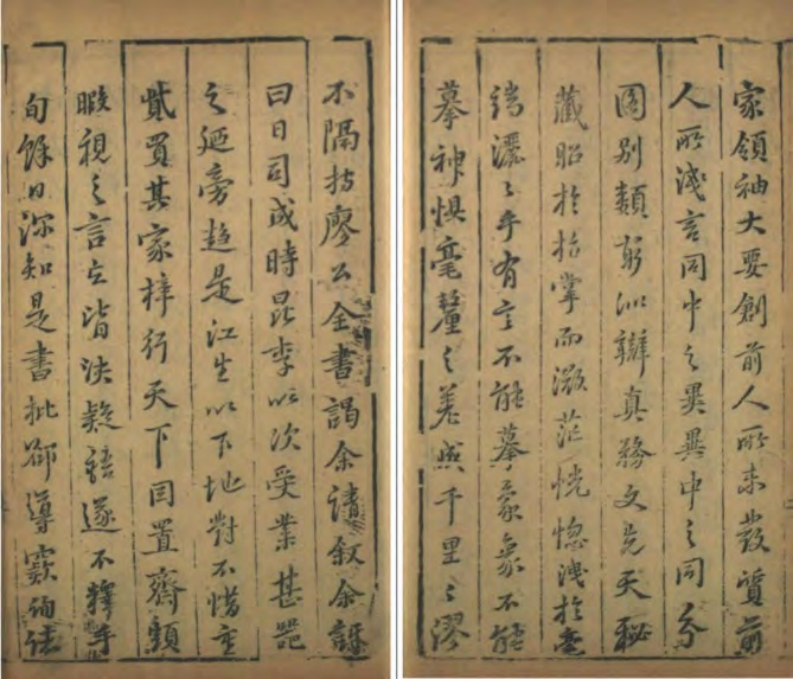 家領袖大要創前人所未發質前
人所淺言同中之異異中之同分
圖別類窮辯真文先天秘
藏昭於指掌而茫恍惚洩於毫
端灑〻乎有言不能摹象象不能
摹神惧毫釐之差千里之謬
不隔指廖公全書謁余請叙余
曰日司成時昆季以次受業甚器
之廼旁趋是江生以下地對不惜重
貲買其家梓行天下因置齊頭
暇視之言立皆決疑語遂不釋手
旬餘日深知是書批郤導窾